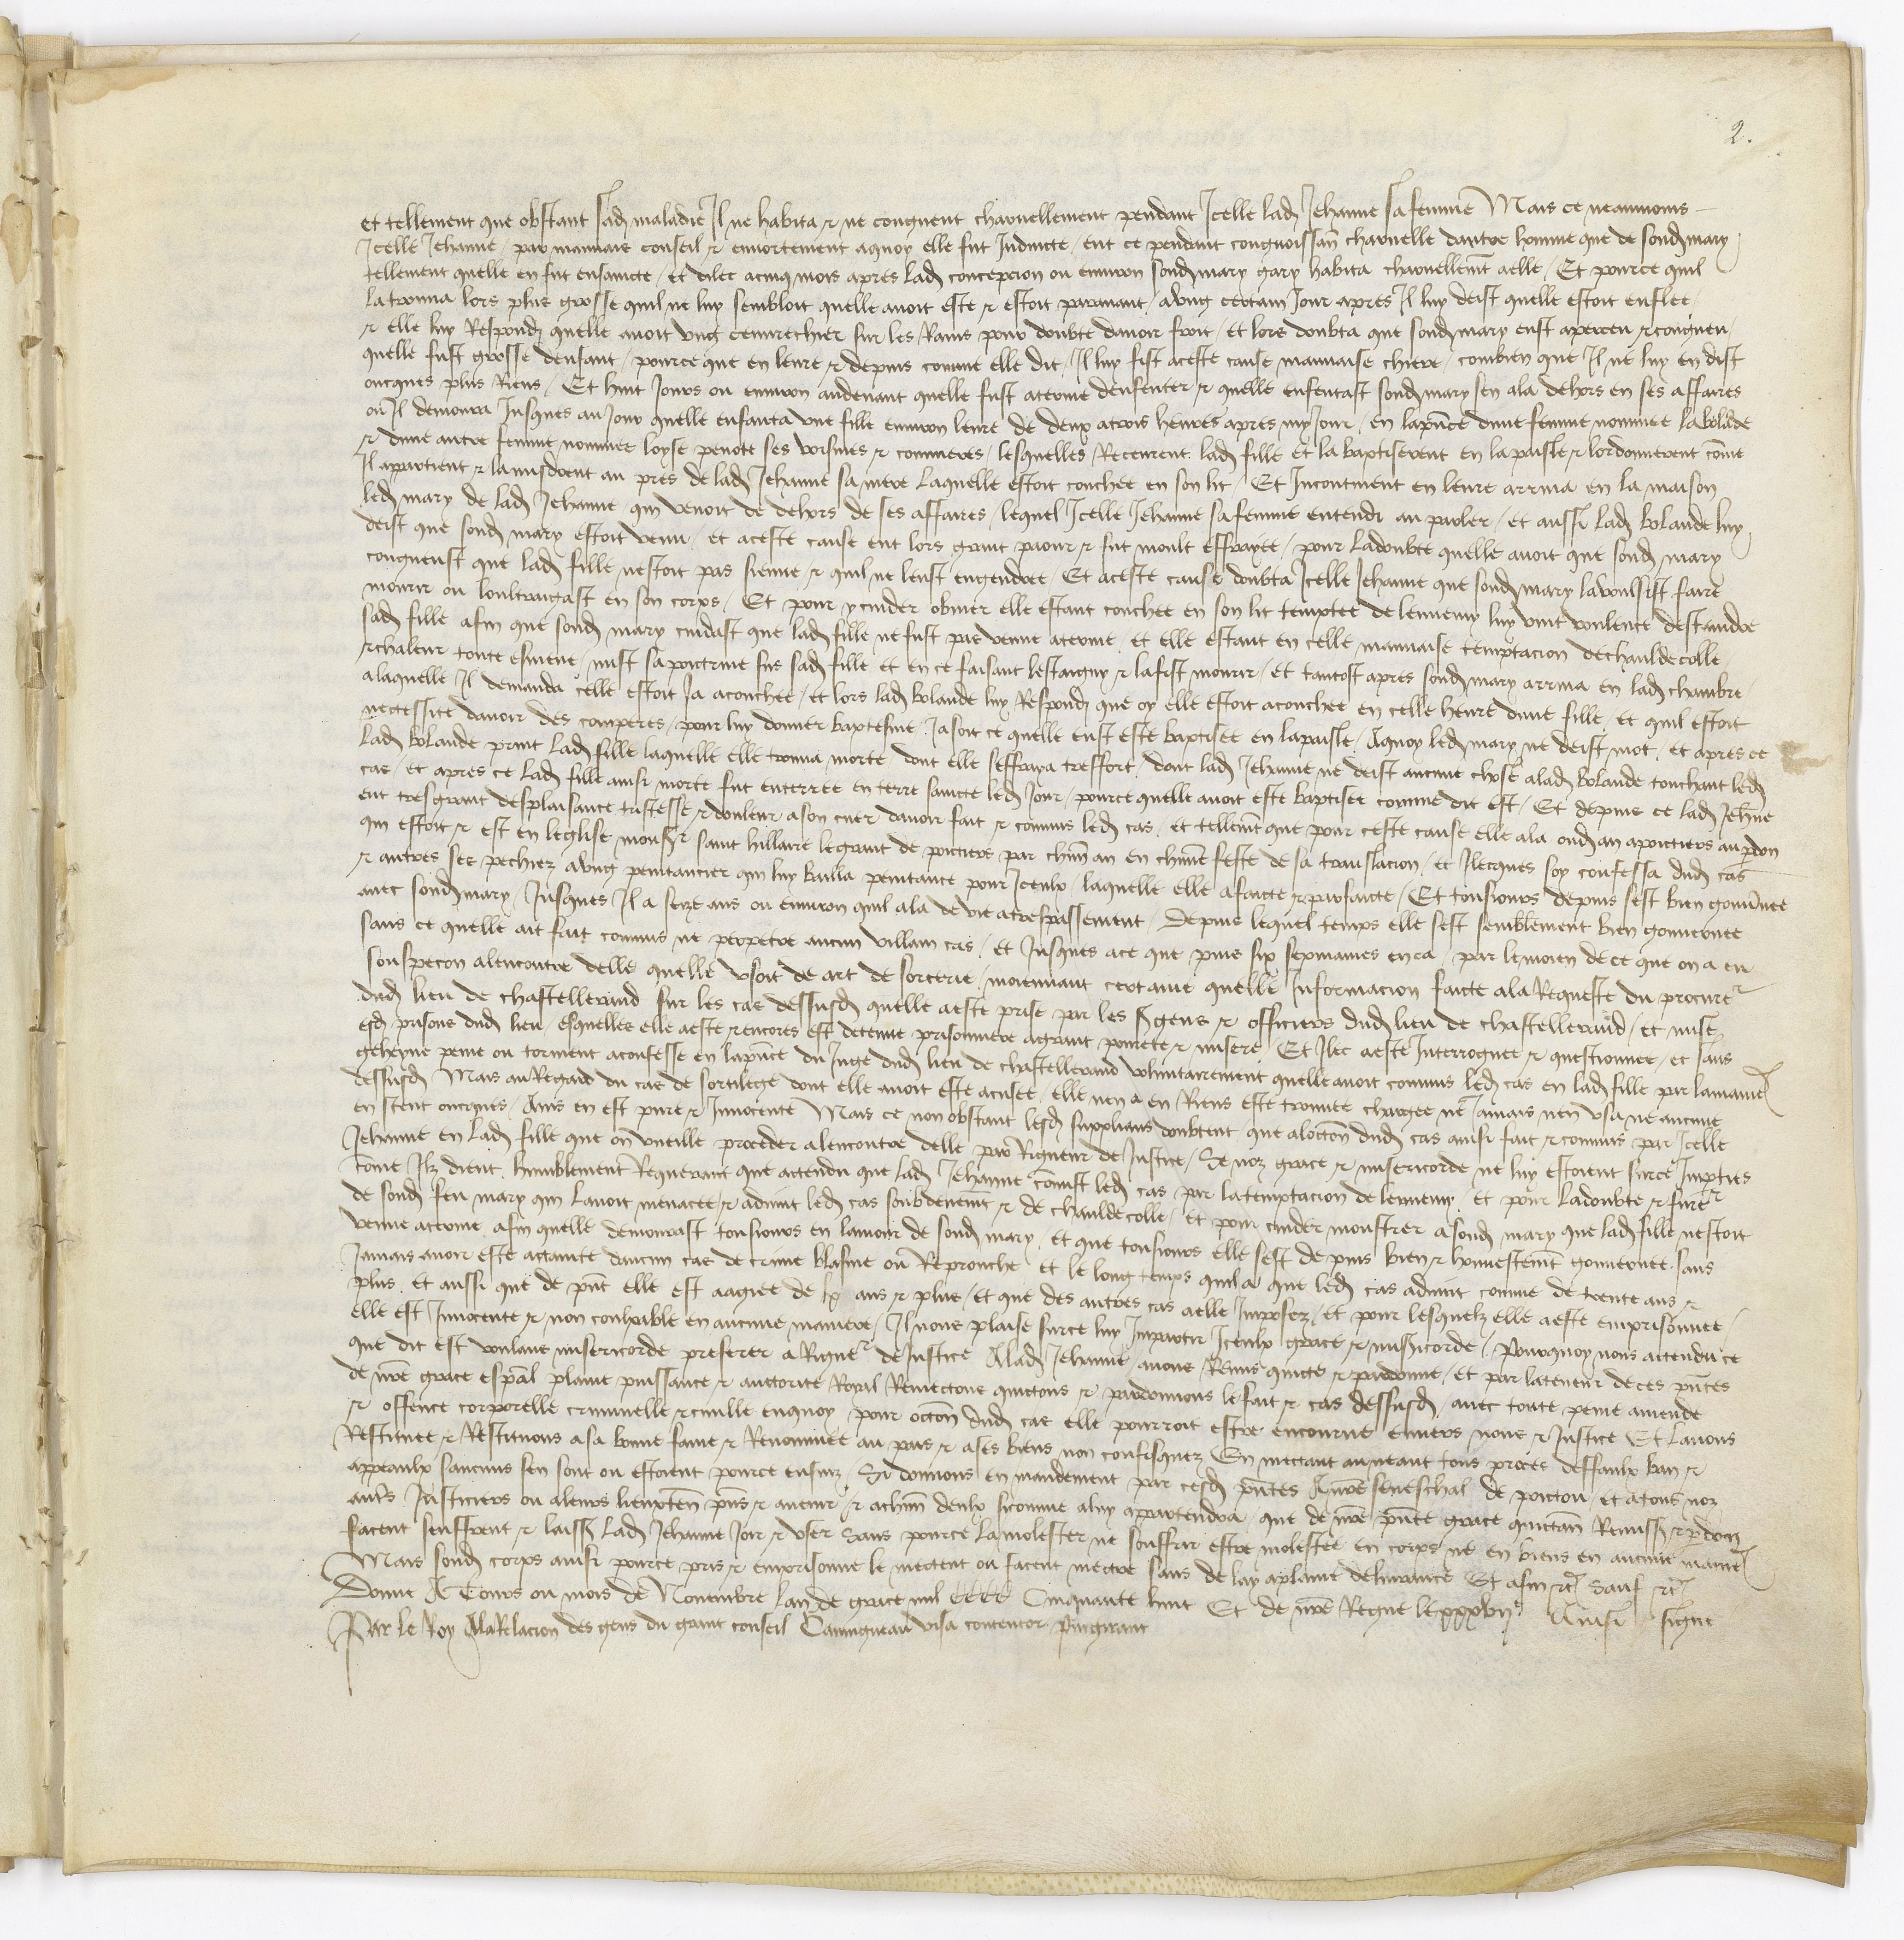 2.
et tellement que obstant sad maladie Il ne habita & ne congneut charnellement pendant Icelle lad Jehanne sa femme Mais ce neanmoins
Icelle Jehanne par mauvais conseil & ennortement aquoy elle fut Inducte / eut ce pendant congnoissan charnelle dautre homme que de sond mary
tellement quelle en fut ensaincte / et dilec acinq mois apres lad concepcion ou environ sond mary gary habita charnellemt aelle / Et pource quil
la trouva lors plus grosse quil ne luy sembloit quelle avoit este & estoit paravant / a Ung certain Jour apres Il luy deist quelle estoit enflee /
& elle luy Respondi quelle avoit ung ceuvrechier sur les Rains pour doubte davoir froit / et lors doubta que sond mary eust aperceu & congneu
quelle fust grosse denfant / pource que en leure & depuis comme elle dit / Il luy fist aceste cause mauvaise chiere / combien que Il ne luy en deist
oncques plus Riens / Et huit Jours ou environ audevant quelle fust aterme denfenter & quelle enfentast sond mary sen ala dehors en ses affaires
ou Il demoura Jusques au Jour quelle enfanta une fille environ leure de deux atrois heures apres my Jour / en lapnce dune femme nommee la bolade
& dune autre femme nommee loyse penote ses voisines & commeres / lesquelles Receurent lad fille et la baptiserent en la paisle & lordonnerent come
Il appartient & la misdrent au pres de lad Jehanne sa mere laquelle estoit couchee en son lit Et Incontinent en leure arriva en la maison
led mary de lad Jehanne qui venoit de dehors de ses affaires / lequel Icelle Jehanne sa femme entendi au parler / et aussi lad bolande luy
deist que sond mary estoit venu / et aceste cause eut lors grant paour & fut moult effrayee / pour ladoubte quelle avoit que sond mary
congneust que lad fille nestoit pas sienne & quil ne leust engendree / Et aceste cause doubta Icelle Jehanne que sond mary la voulsist faire
mourir ou loultragast en son corps / Et pour y cuider obvier elle estant couchee en son lit temptee de lennemy luy vint voulente destaindre
sad fille afin que sond mary cuidast que lad fille ne fust pas venue aterme / et elle estant en celle mauvaise temptacion de chauldecolle
& chaleur toute esmeue / mist sa poictrine sus sad fille et en ce faisant lestaigny & la fist mourir / et tantost apres sond mary arriva en lad chambre
alaquelle Il demanda celle estoit Ja acouchee / et lors lad bolande luy Respondi que oy elle estoit acouchee en celle heure dune fille / et quil estoit
necessite davoir des comperes / pour luy donner baptesme / Jasoit ce quelle eust este baptisee en lapaisle / Aquoy led mary ne deist mot / et apres ce
lad bolande print lad fille laquelle elle trouva morte / dont elle seffraya tresfort / dont lad Jehanne ne deist aucune chose alad bolande touchant led
cas / et apres ce lad fille ainsi morte fut enterree en terre saincte led Jour / pource quelle avoit este baptisee comme dit est / Et depuis ce lad Jehne
eut tresgrant desplaisance tristesse & douleur a son cuer davoir fait & commis led cas / et tellemt que pour ceste cause elle ala oud an apoictiers au pdon
qui estoit & est en leglise monsr saint hillaire legrant de poictiers par chun an en chune feste de sa translacion / et Ilecques soy confessa dud cas
& autres ses pechiez a Ung penitancier qui luy bailla penitance pour Iceulx / laquelle elle afaicte & parfaicte / Et tousiours depuis sest bien gouvnee
avec sond mary / Jusques Il a seize ans ou environ quil ala de vie atrespassement / Depuis lequel temps elle sest semblement bien gouvernee
sans ce quelle ait fait commis ne perpetre aucun villain cas / et Jusques ace que puis six sepmaines enca / par lemoien de ce que on a eu
souspecon alencontre delle quelle usoit de art de sorcerie / moiennant certaine quelle Informacion faicte ala Requeste du procurer
dud lieu de chastelleraud sur les cas dessusd quelle aeste prise par les sgens & officiers dud lieu de chastelleraud / et mise
esd prisons dud lieu / esquelles elle aeste & encores est detenue prisonniere agrant povrete & misere / Et Ilec aeste Interroguee & questionnee / et sans
geheyne peine ou torment aconfesse en lapnce du Juge dud lieu de chastelleraud voluntairement quelle avoit commis led cas en lad fille par lamanie
dessusd Mais au Regard du cas de sortilege dont elle avoit este acusee / elle nen a en Riens este trouvee chargee ne Jamais nen usa ne aucune
en sceut oncques / Ains en est pure & Innocente Mais ce non obstant lesd supplians doubtent que aloccon dud cas ainsi fait & commis par Icelle
Jehanne en lad fille que on vueille proceder alencontre delle par Rigueur de Justice / Se noz grace & misericorde ne luy estoient surce Impties
come Ilz dient humblement Requerant que actendu que lad Jehanne comist led cas par latemptacion de lennemy / et pour ladoubte & fureur
de sond feu mary qui lavoit menacee & advint led cas soubdenemt & de chauldecolle / et pour cuider monstrer asond mary que lad fille nestoit
venue aterme / afin quelle demourast tousiours en lamour de sond mary / et que tousiours elle sest depuis bien & honnestemt gouvernee sans
Jamais avoir este actainte daucun cas de crime blasme ou Reprouche et le long temps quil a que led cas advint comme de trente ans &
plus / et aussi que de pnt elle est aagiee de lx ans & plus / et que des autres cas aelle Imposez / et pour lesquelz elle aeste emprisonnee /
elle est Innocente & non coulpable en aucune maniere / Il nous plaise surce luy Impartir Iceulx grace & misicorde / Pourquoy nous actendu ce
que dit est voulans misericorde preferer a Rigueur de Justice Alad Jehanne avons Remis quicte & pardonne / et par lateneur de ces pntes
de nre grace espal plaine puissance & auctorite Royal Remectons quictons & pardonnons le fait & cas dessusd / avec toute peine amende
& offence corporelle criminelle & civille enquoy pour occon dud cas elle pourroit estre encourue envers nous & Justice Et lavons
Restituee & Restituons asa bonne fame & Renommee au pais & ases biens non confisquez En mectant au neant tous proces deffaulx ban &
appeaulx saucuns sen sont ou estoient pource ensuiz / Si donnons en mandement par cesd pntes A nre seneschal de poictou et atous noz
autrs Justiciers ou aleurs lieuxten pns & avenir & achun deulx sicomme aluy appartendra / que de nre pnte grace quictan Remiss & pdon
facent seuffrent & laiss lad Jehanne Joir & user Sans pource la molester ne souffrir estre molestee en corps ne en biens en aucune manie
Mais sond corps ainsi pource pris & emprisonne le mectent ou facent mectre sans delay aplaine delivrance Et afin &c Sauf &c
Donne A Tours ou mois de Novembre lan de grace mil CCCC Cinquante huit Et de nre Regne le xxxvije Ainsi signe
Par le Roy Ala Relacion des gens du grant conseil Canugneau visa contentor Puigirant